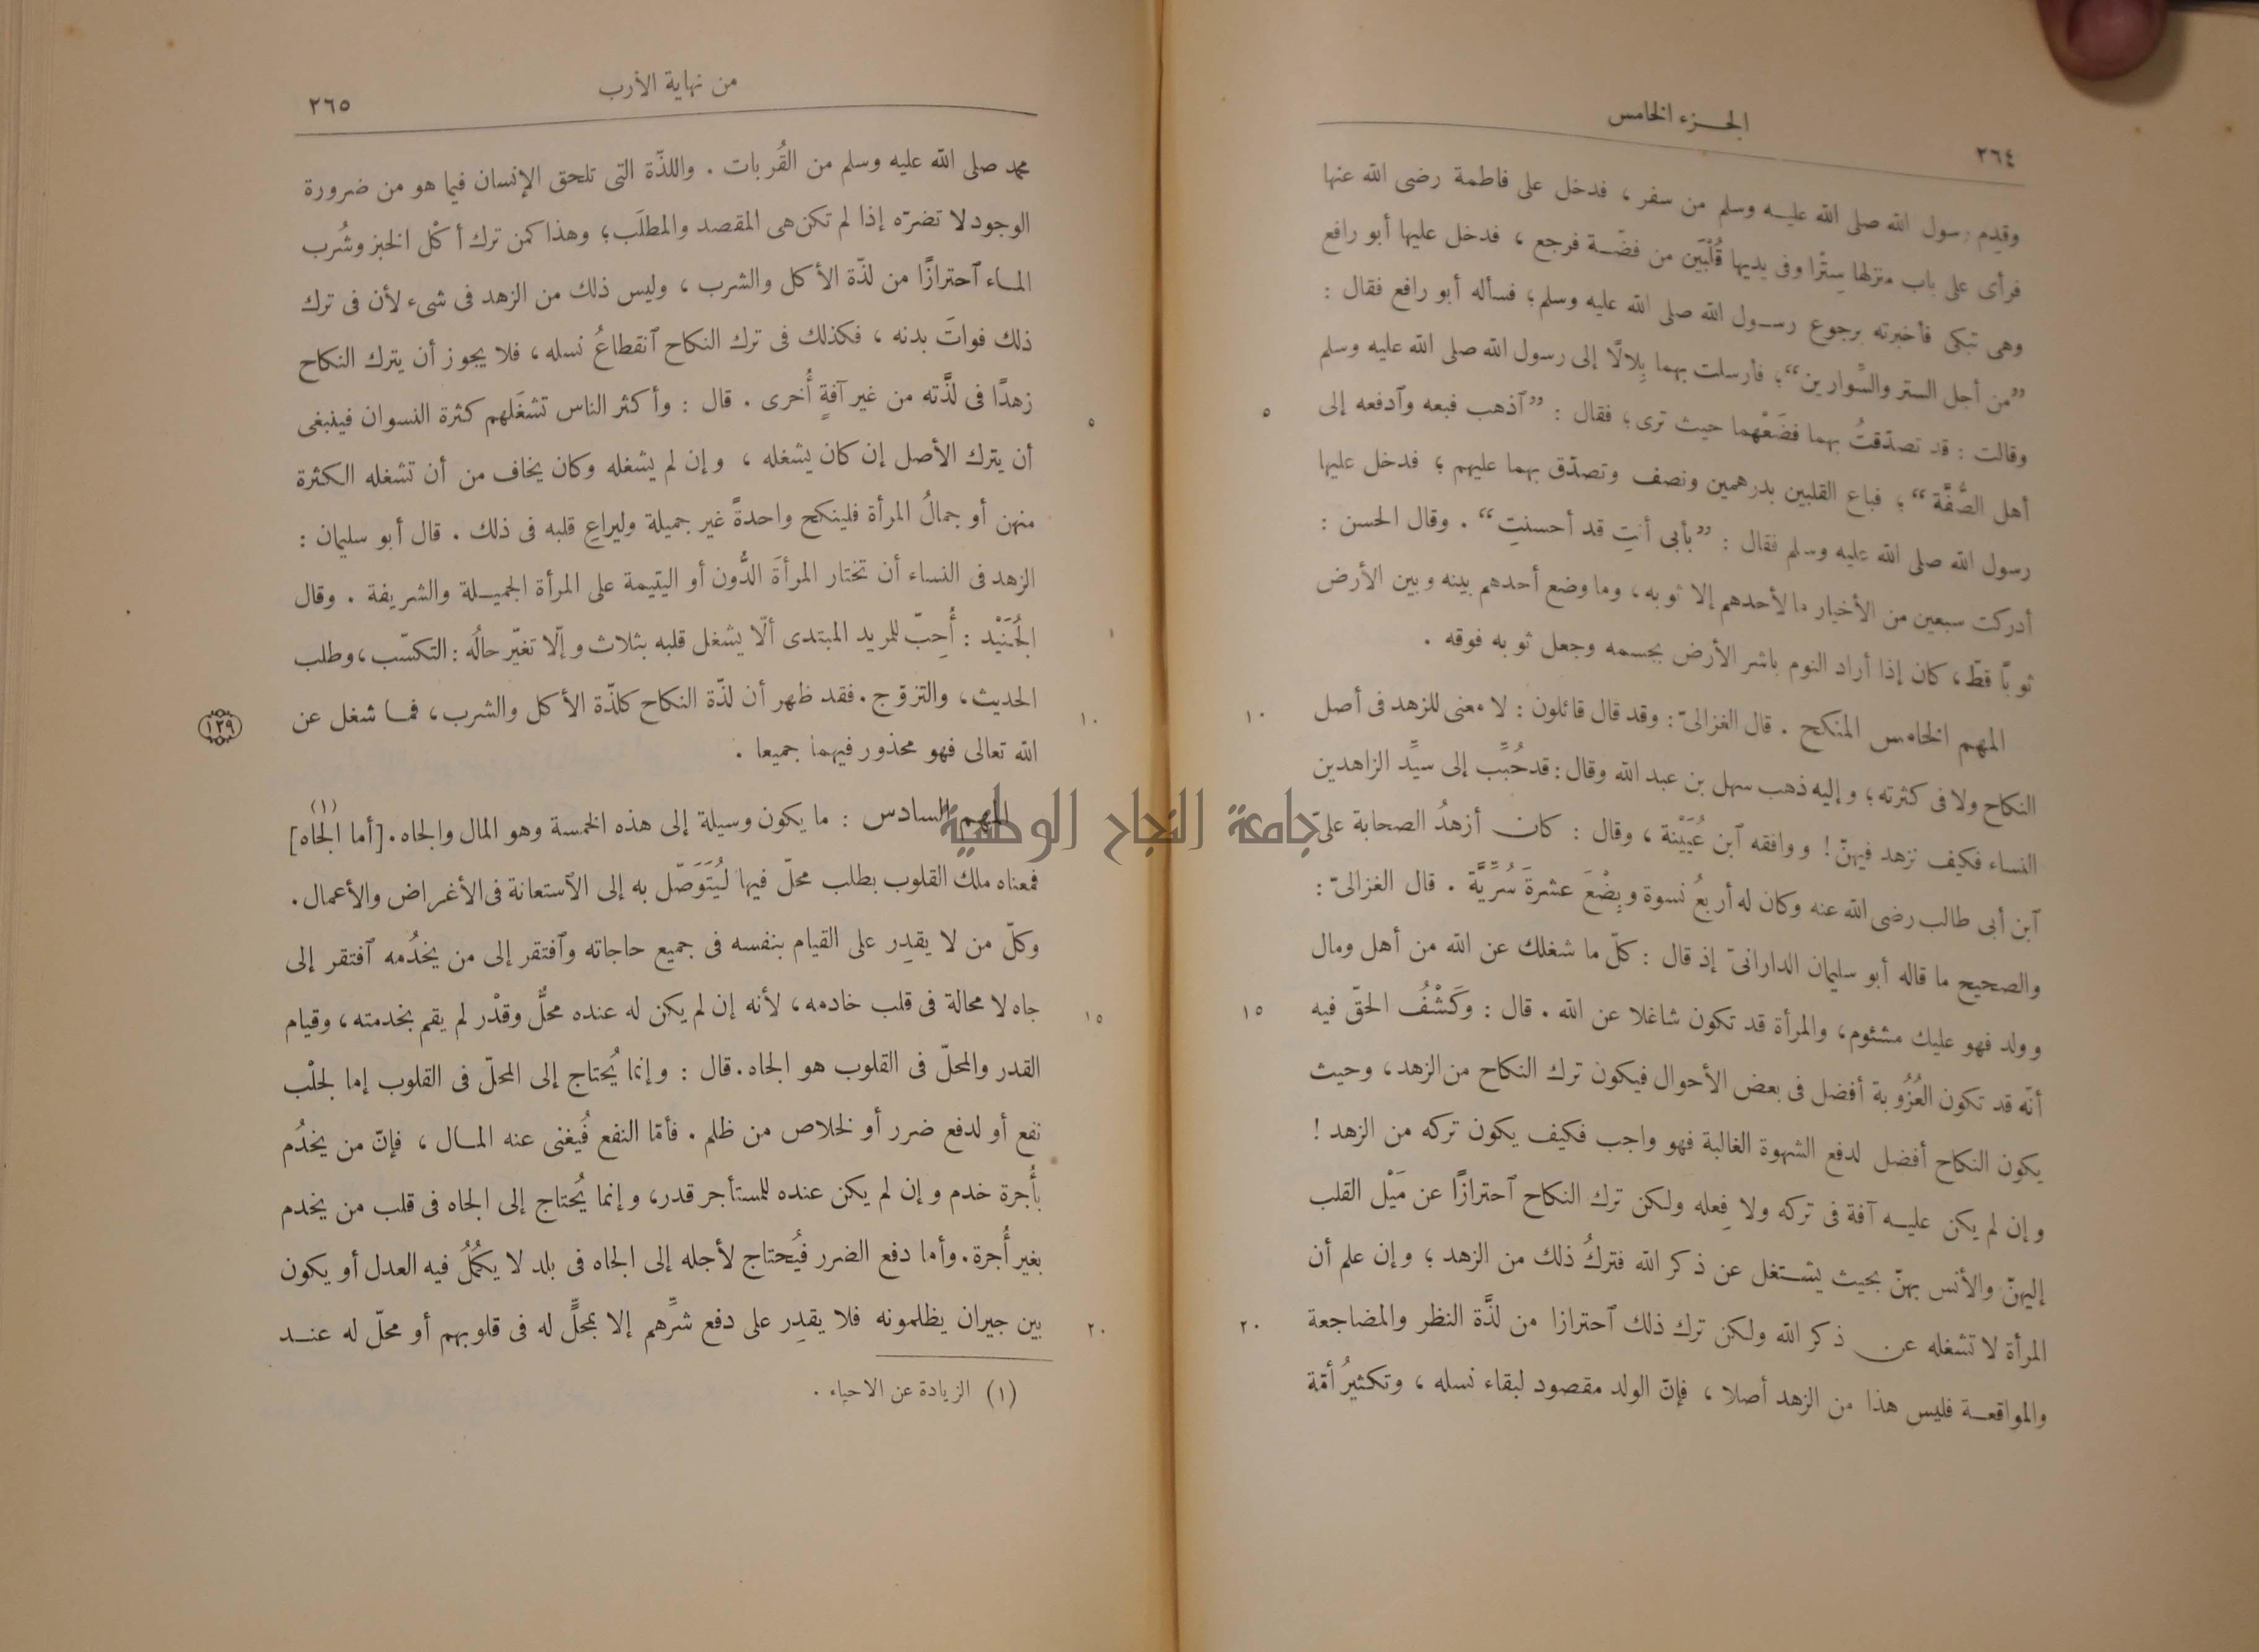 الجزء الخامس
٢٦٤
وقدِم رسول الله صلى الله عليه وسلم من سفر، فدخل على فاطمة رضى الله عنها
فرأى على باب منزلها سِتْرا وفى يديها قُلْبَين من فضّة فرجع، فدخل عليها أبو رافع
وهى تبكى فأخبرته برجوع رسول الله صلى الله عليه وسلم؛ فسأله أبو رافع فقال:
”من أجل الستر والسِّوارين“؛ فأرسلت بهما بِلالًا إلى رسول الله صلى الله عليه وسلم
وقالت: قد تصدّقتُ بهما فضَعْهما حيث ترى؛ فقال: ”آذهب فبعه وآدفعه إلى
٥
أهل الصُّفَّة“؛ فباع القلبين بدرهمين ونصف وتصدّق بهما عليهم؛ فدخل عليها
رسول الله صلى الله عليه وسلم فقال: ”بأبى أنتِ قد أحسنتِ“. وقال الحسن:
أدركت سبعين من الأخيار ما لأحدهم إلا ثوبه، وما وضع أحدهم بينه وبين الأرض
ثوبًا قطّ، كان إذا أراد النوم باشر الأرض بجسمه وجعل ثوبه فوقه.
المهم الخامس المنكح. قال الغزالىّ: وقد قال قائلون: لا معنى للزهد فى أصل
١٠
النكاح ولا فى كثرته؛ وإليه ذهب سهل بن عبد الله وقال: قد حُبِّب إلى سيِّد الزاهدين
النساء فكيف نزهد فيهنّ! ووافقه آبن عُيَيْنة، وقال: كان أزهدُ الصحابة علىّ
آبن أبى طالب رضى الله عنه وكان له أربعُ نسوة وبِضْعَ عشرةَ سُرِّيَّة. قال الغزالىّ:
والصحيح ما قاله أبو سليمان الدارانىّ إذ قال: كلّ ما شغلك عن الله من أهل ومال
وولد فهو عليك مشئوم، والمرأة قد تكون شاغلا عن الله. قال: وكَشْفُ الحقّ فيه
١٥
أنّه قد تكون العُزُوبة أفضل فى بعض الأحوال فيكون ترك النكاح من الزهد، وحيث
يكون النكاح أفضل لدفع الشهوة الغالبة فهو واجب فكيف يكون تركه من الزهد!
وإن لم يكن عليه آفة فى تركه ولا فِعله ولكن ترك النكاح آحترازًا عن مَيْل القلب
إليهنّ والأنس بهنّ بحيث يشتغل عن ذكر الله فتركُ ذلك من الزهد؛ وإن علم أن
المرأة لا تشغله عن ذكر الله ولكن ترك ذلك آحترازا من لذَّة النظر والمضاجعة
٢٠
والمواقعة فليس هذا من الزهد أصلا، فإنّ الولد مقصود لبقاء نسله، وتكثيرُ أمّة
من نهاية الأرب
٢٦٥
محمد صلى الله عليه وسلم من القُربات. واللذّة التى تلحق الإنسان فيما هو من ضرورة
الوجود لا تضرّه إذا لم تكن هى المقصد والمطلَب؛ وهذا كمن ترك أكْل الخبز وشُرب
الماء آحترازًا من لذّة الأكل والشرب، وليس ذلك من الزهد فى شىء لأن فى ترك
ذلك فواتَ بدنه، فكذلك فى ترك النكاح آنقطاعُ نسله، فلا يجوز أن يترك النكاح
زهدًا فى لذَّته من غير آفةٍ أُخرى. قال: وأكثر الناس تشغَلهم كثرة النسوان فينبغى
٥
أن يترك الأصل إن كان يشغله، وإن لم يشغله وكان يخاف من أن تشغله الكثرة
منهن أو جمالُ المرأة فلينكح واحدةً غير جميلة وليراعِ قلبه فى ذلك. قال أبو سليمان:
الزهد فى النساء أن تختار المرأةَ الدُّون أو اليتيمة على المرأة الجميلة والشريفة. وقال
الجُنَيْد: أُحِبّ للمريد المبتدى ألّا يشغل قلبه بثلاث وإلّا تغيّر حالُه: التكسّب، وطلب
الحديث، والتزوّج. فقد ظهر أن لذّة النكاح كلذّة الأكل والشرب، فما شغل عن
١٠
١٢٩
الله تعالى فهو محذور فيهما جميعا.
المهم السادس: ما يكون وسيلة إلى هذه الخمسة وهو المال والجاه. [أما الجاه](١)
جامعة النجاح الوطنية
فمعناه ملك القلوب بطلب محلّ فيها ليُتَوَصّل به إلى الآستعانة فى الأغراض والأعمال.
وكلّ من لا يقدِر على القيام بنفسه فى جميع حاجاته وآفتقر إلى من يخدُمه آفتقر إلى
جاه لا محالة فى قلب خادمه، لأنه إن لم يكن له عنده محلٌّ وقدْر لم يقم بخدمته، وقيام
١٥
القدر والمحلّ فى القلوب هو الجاه. قال: وإنما يُحتاج إلى المحلّ فى القلوب إما لجلْب
نفع أو لدفع ضرر أو لخلاص من ظلم. فأمّا النفع فُيغنى عنه المال، فإنّ من يخدُم
بأُجرة خدم وإن لم يكن عنده للمستأجر قدر، وإنما يُحتاج إلى الجاه فى قلب من يخدم
بغير أُجرة. وأما دفع الضرر فيُحتاج لأجله إلى الجاه فى بلد لا يكمُلُ فيه العدل أو يكون
بين جيران يظلمونه فلا يقدِر على دفع شرِّهم إلا بمحلٍّ له فى قلوبهم أو محلّ له عند
٢٠
(١) الزيادة عن الاحياء.